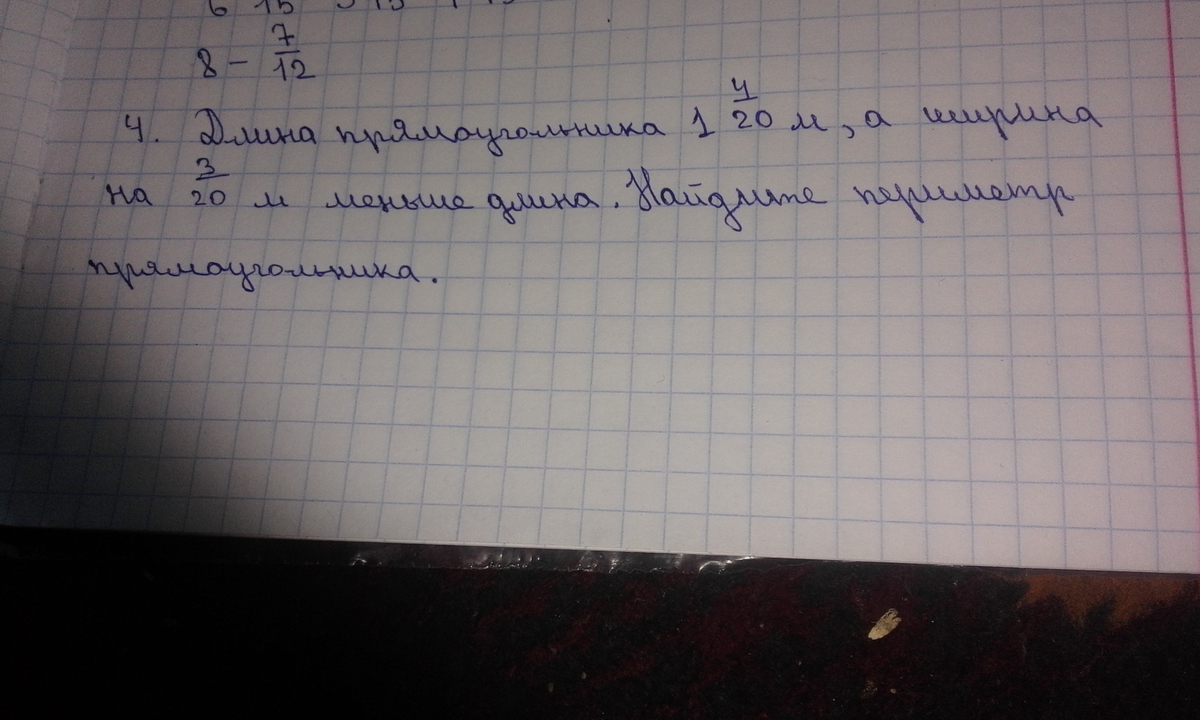 8 - 7/12
4. Длина прямоугольника 1 4/20 м, а ширина
на 3/20 м меньше длина. Найдите периметр
прямоугольника.